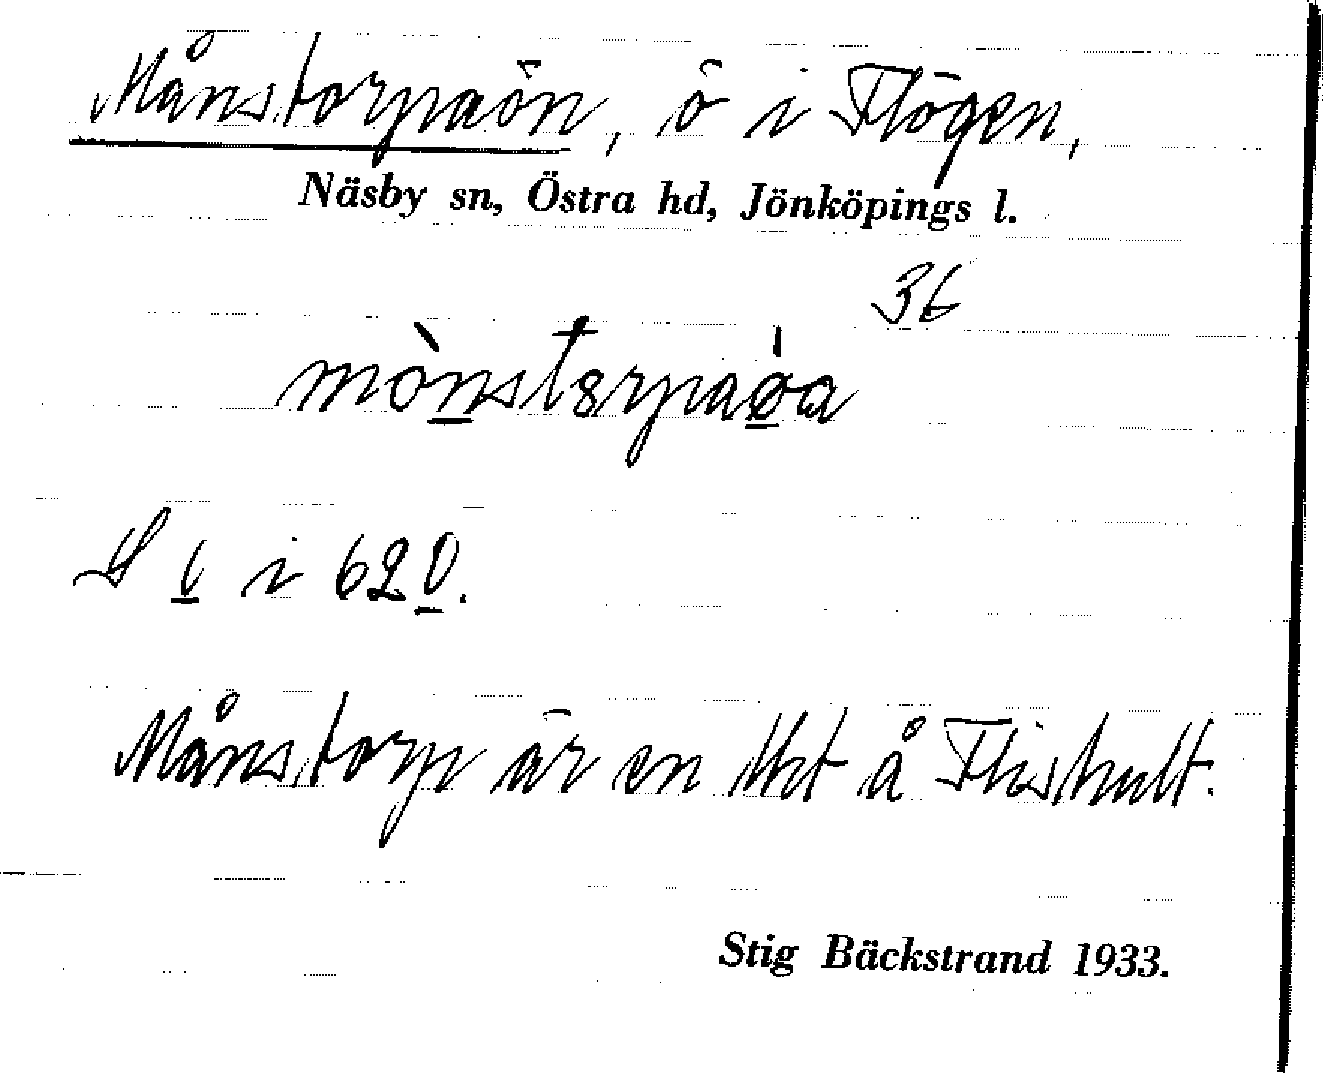 Månstorpaön, ö i Flögen,
Näsby sn, Östra hd, Jönköpings l.
36
mònstɵrpaøa
S V i 62 V.
Månstorp är en lht å Flishult.
Stig Bäckstrand 1933.